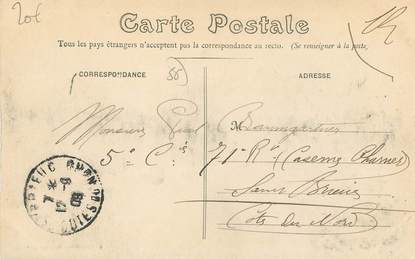 20f
Carte Postale
Tous les pays étrangers n'acceptent pas la correspondance au recto. (Se renseigner à la poste)
CORRESPONDANCE
ADRESSE
Monsieur Paul M Baumgartner
5e Cie 71e Rt (Caserne Charner)
Saint Brieuc
Côtes du Nord